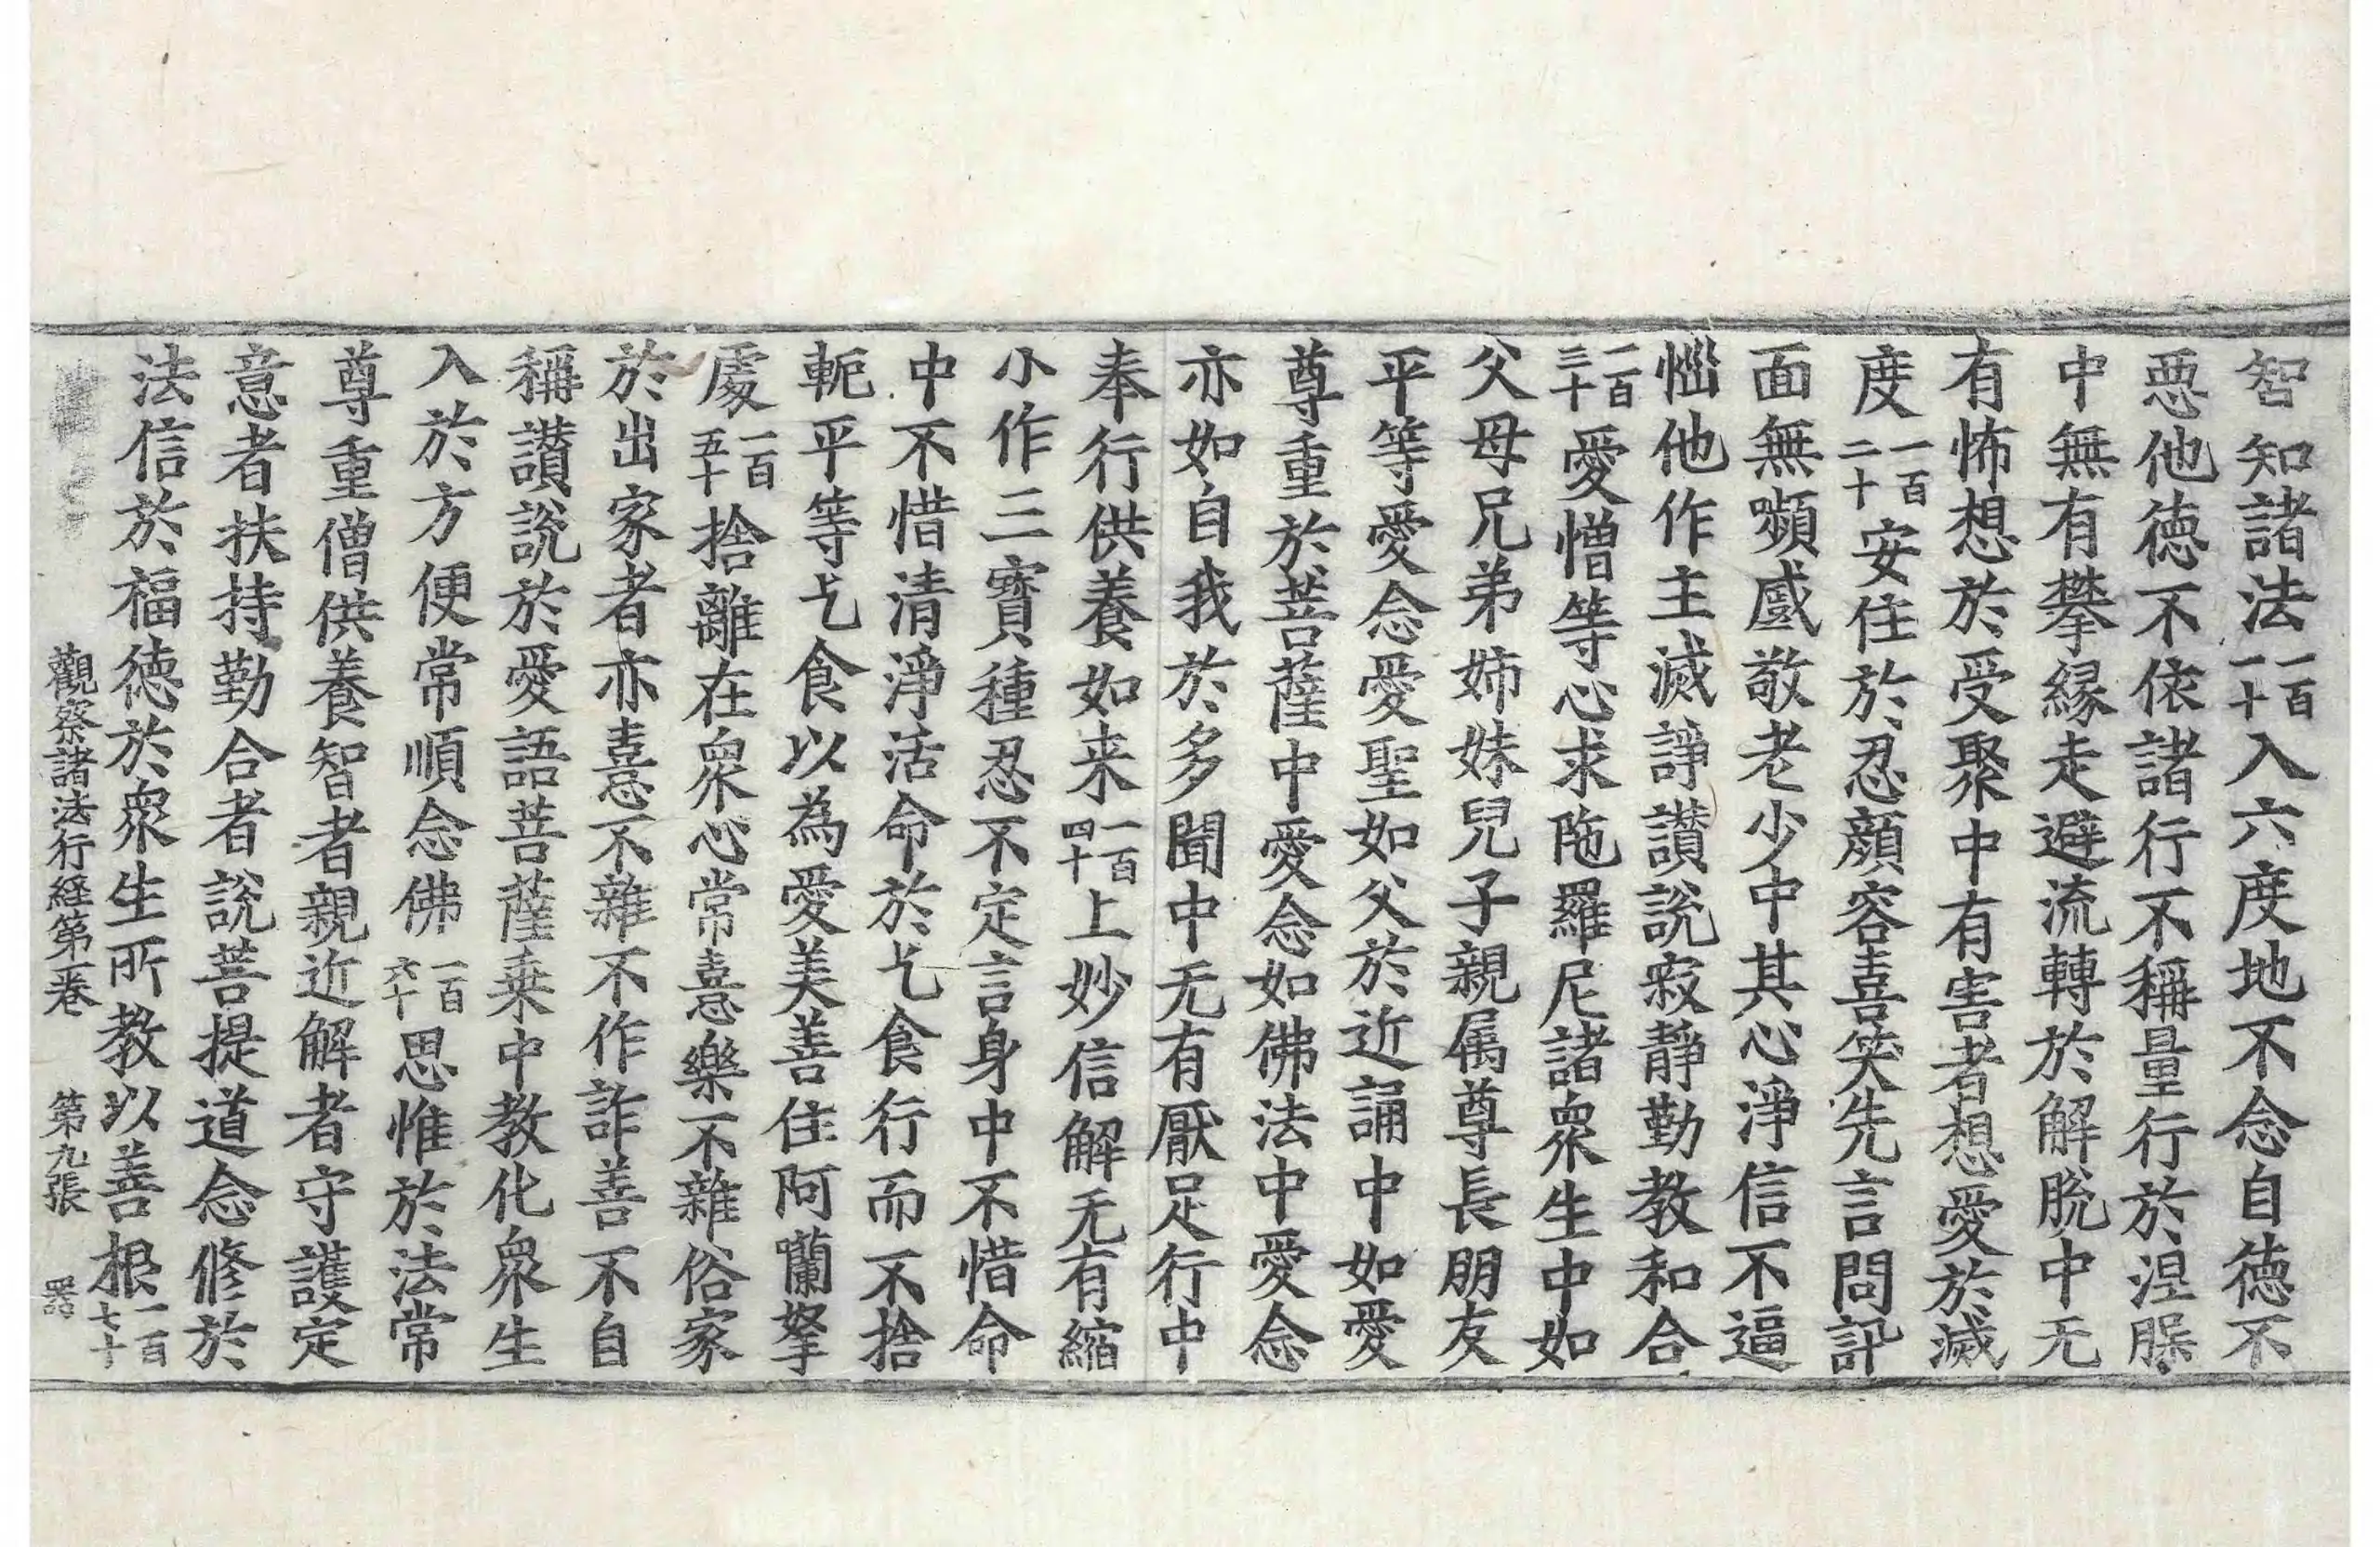 智知諸法一百一十入六度地不念自徳不
惡他徳不依諸行不稱量行於涅槃
中無有攀縁走避流轉於解脫中无
有怖想於受聚中有害者想愛於滅
度一百二十安住於忍顔容喜笑先言問訊
面無嚬慼敬老少中其心淨信不逼
惱他作主滅諍讃說寂靜勤教和合
一百三十愛憎等心求陁羅尼諸衆生中如
父母兄弟姉妹兒子親属尊長朋友
平等愛念愛聖如父於近誦中如愛
尊重於菩薩中愛念如佛法中愛念
亦如自我於多聞中无有厭足行中
奉行供養如来一百四十上妙信解无有縮
小作三寶種忍不定言身中不惜命
中不惜清淨活命於乞食行而不捨
軛平等乞食以為愛美善住阿蘭拏
處一百五十捨離在衆心常憙樂不雜俗家
於出家者亦憙不雜不作詐善不自
稱讃說於愛語菩薩乗中教化衆生
入於方便常順念佛一百六十思惟於法常
尊重僧供養智者親近解者守護定
意者扶持勤合者說菩提道念修於
法信於福徳於衆生所教以善根一百七十
觀察諸法行経第一卷 第九張 器